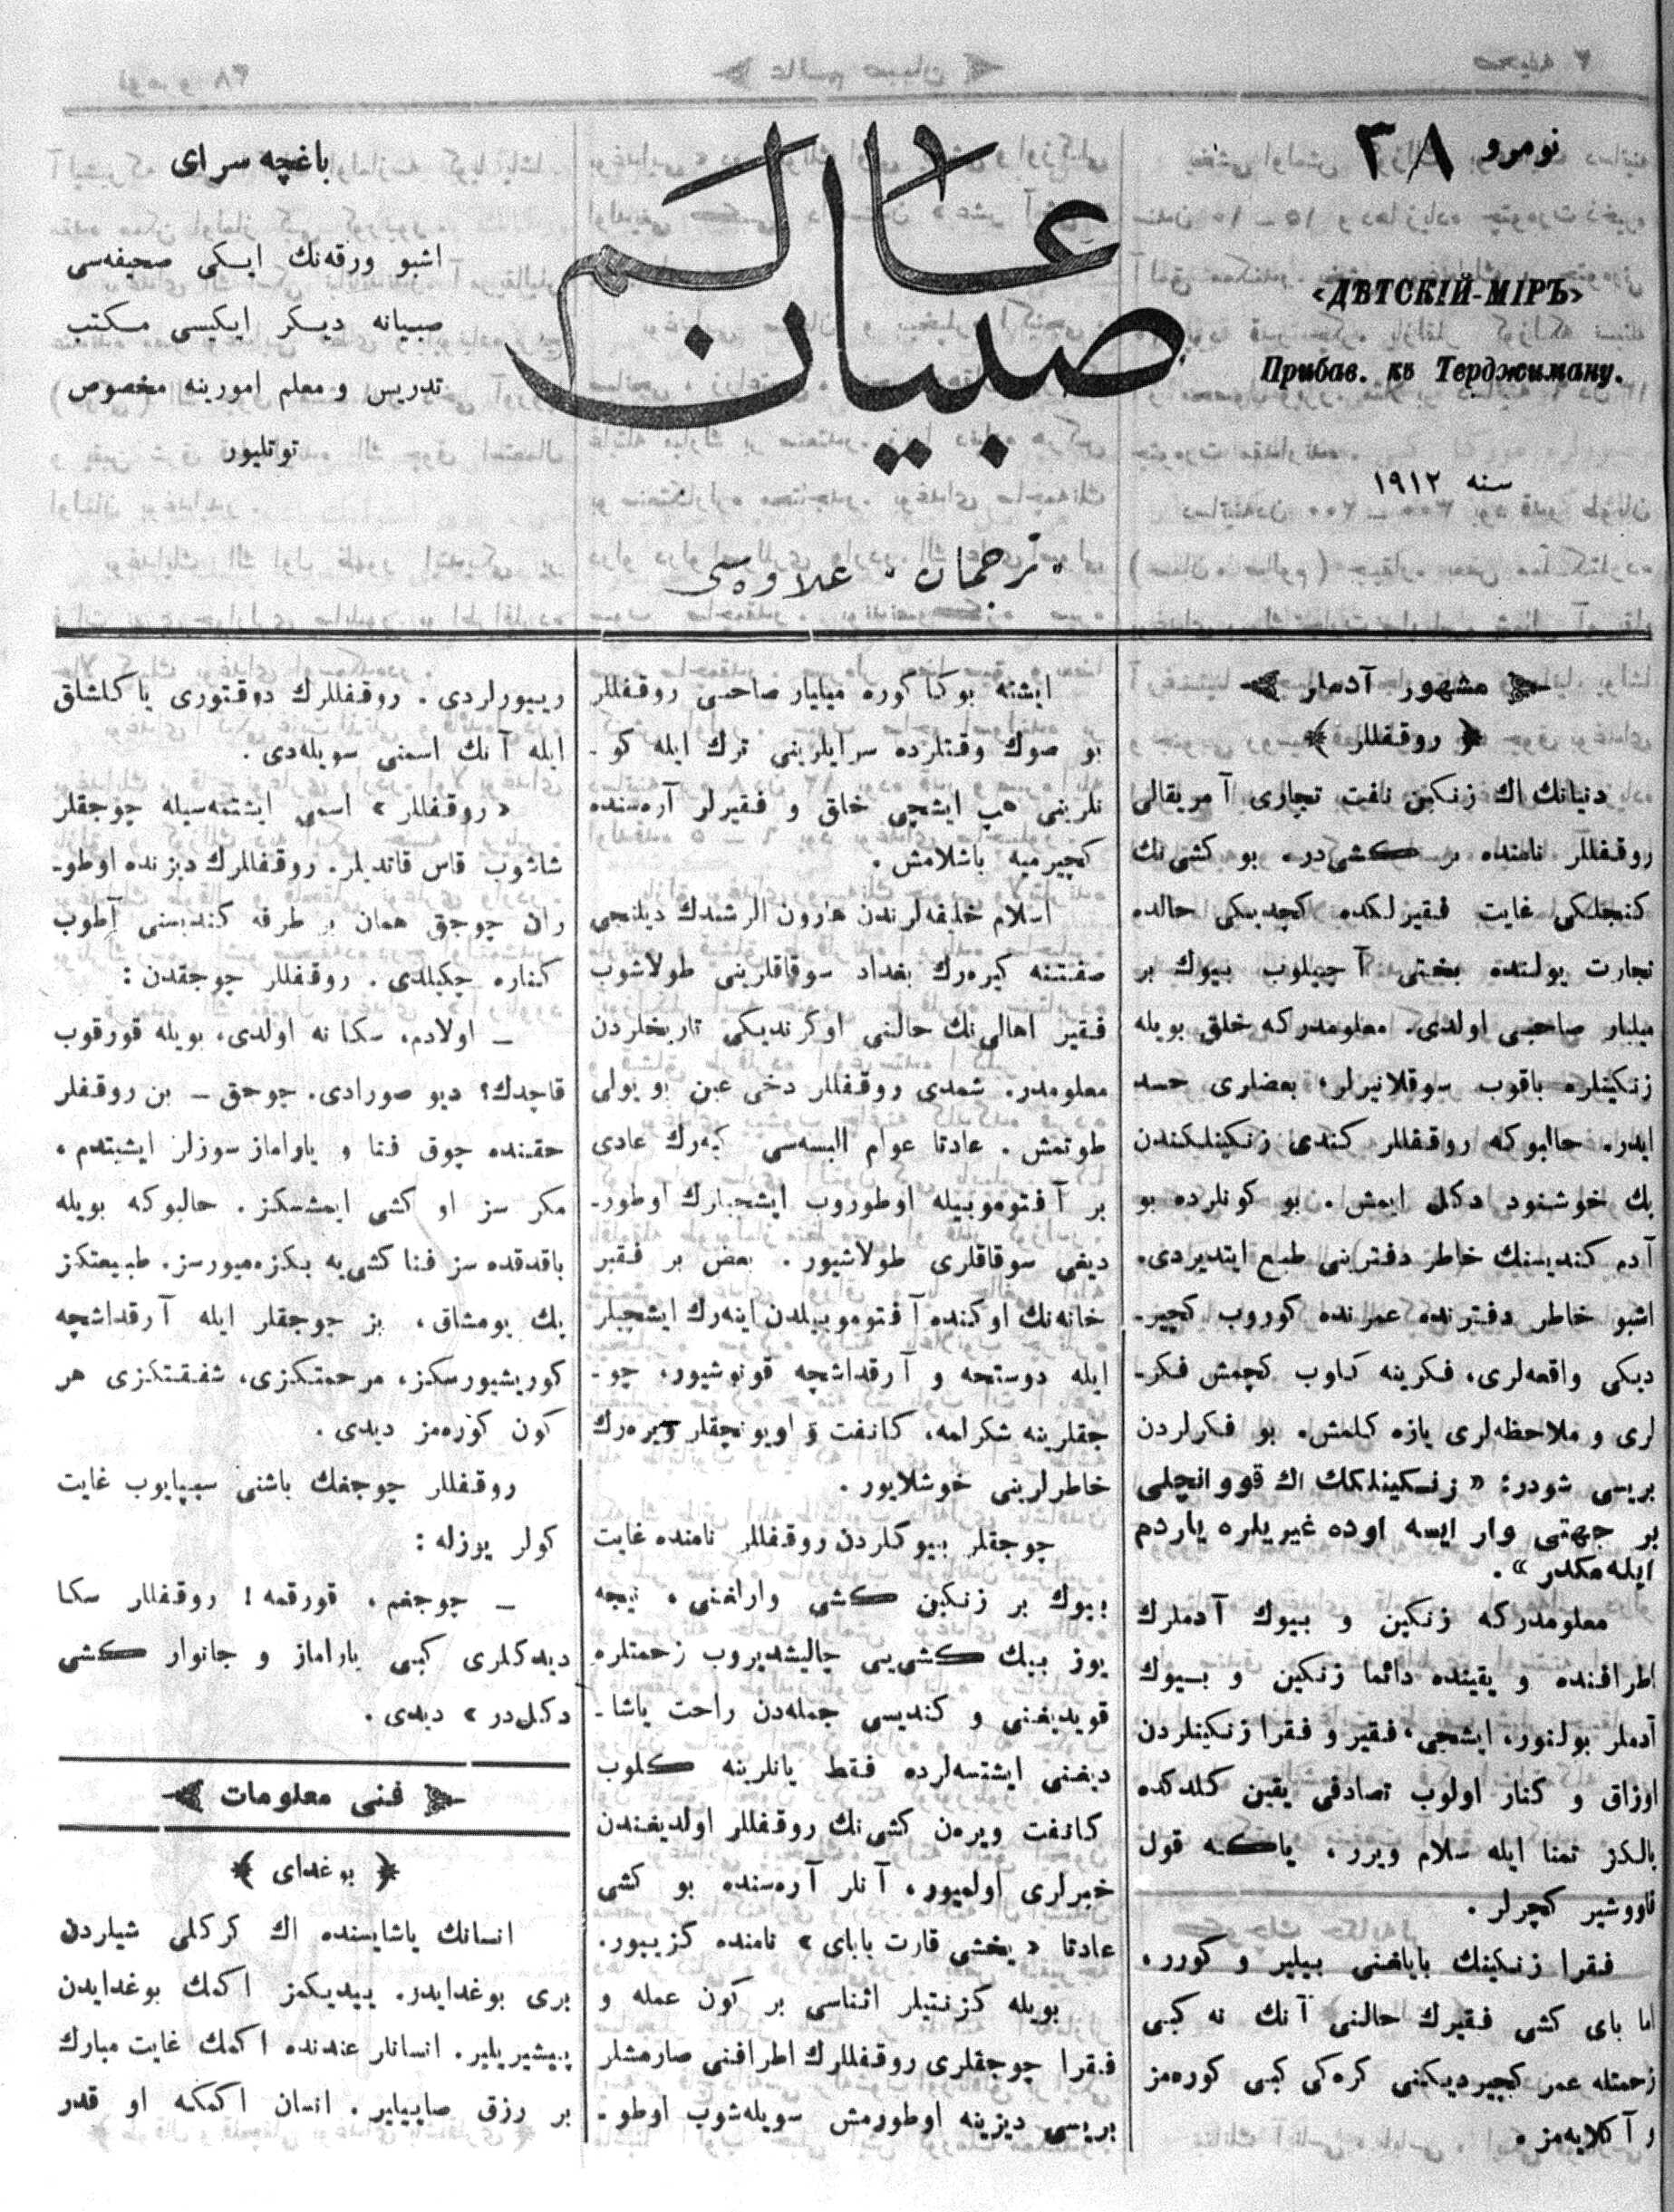 نومرو ٣٨
«ДѢТСКІЙ-МІРЪ»
Прибав. къ Терджиману.
سنه ١٩١٢
عالم
صبيان
„ترجمان“ علاوه‌سى
باغچه سراى
اشبو ورقه‌نك ايكى صحيفه‌سى
صبيانه ديكر ايكيسى مكتب
تدريس و معلم امورينه مخصوص
توتليور
مشهور آدملر
﴿ روقفللر ﴾
دنيانك اك زنكين نافت تجارى آمريقالى
روقفللر نامنده بر كشى‌در. بو كشى‌نك
كنجلكى غايت فقيرلكده كچديكى حالده
تجارت يولنده بختى آچيلوب بيوك بر
ميليار صاحبى اولدى. معلومدركه خلق بويله
زنكينلره باقوب سوقلانيرلر، بعضلرى حسد
ايدر. حالبوكه روقفللر كندى زنكينلكندن
بك خوشنود دكل ايمش. بو كونلرده بو
آدم كنديسنك خاطر دفترينى طبع ايتديردى.
اشبو خاطر دفترنده عمرنده كوروب كچير-
ديكى واقعه‌لرى، فكرينه كلوب كچمش فكر-
لرى و ملاحظه‌لرى يازه كلمش. بو فكرلردن
بريسى شودر: « زنكينلكك اك قووانچلى
بر جهتى وار ايسه اوده غيريلره ياردم
ايله‌مكدر ».
معلومدركه زنكين و بيوك آدملرك
اطرافنده و يقينده دائما زنكين و بيوك
آدملر بولنور، ايشجى، فقير و فقرا زنكينلردن
اوزاق و كنار اولوب تصادفى يقين كلدكده
يالكز تمنا ايله سلام ويرر، ياكه قول
قاووشير كچرلر.
فقرا زنكينك باياغنى بيلير و كورر،
اما باى كشى فقيرك حالنى آنك نه كبى
زحمتله عمر كچيرديكنى كره‌كى كبى كوره‌مز
و آكلايه‌مز.
ايشته بوكا كوره ميليار صاحبى روقفللر
بو صوك وقتلرده سرايلرينى ترك ايله كو-
نلرينى هپ ايشچى خلق و فقيرلر آره‌سنده
كچيرميه باشلامش.
اسلام خليفه‌لرندن هارون الرشيدك ديلنجى
صفتنه كيره‌رك بغداد سوقاقلرينى طولاشوب
فقير اهالى‌نك حالنى اوكرنديكى تاريخلردن
معلومدر. شمدى روقفللر دخى عين بو يولى
طوتمش. عادتا عوام البسه‌سى كيه‌رك عادى
بر آفتوموبيله اوطوروب ايشجيلرك اوطور-
ديغى سوقاقلرى طولاشيور. بعض بر فقير
خانه‌نك اوكنده آفتوموبيلدن اينه‌رك ايشجيلر
ايله دوستجه و آرقداشچه قونوشيور، چو-
جقلرينه شكرلمه، كانفت و اويونجقلر ويره‌رك
خاطرلرينى خوشلايور.
چوجقلر بيوكلردن روقفللر نامنده غايت
بيوك بر زنكين كشى وارلغنى، نيجه
يوز بيك كشى‌يى چاليشديروب زحمتلره
قويديغنى و كنديسى جمله‌دن راحت ياشا-
ديغنى ايشتسه‌لرده فقط يانلرينه كلوب
كانفت ويره‌ن كشى‌نك روقفللر اولديغندن
خبرلرى اولميور، آنلر آره‌سنده بو كشى
عادتا « يخشى قارت باباى » نامنده كزييور.
بويله كزنتيلر اثناسى بر كون عمله و
فقرا چوجقلرى روقفللرك اطرافنى صارمشلر
بريسى ديزينه اوطورمش سويله‌شوب اوطو-
رييورلردى. روقفللرك دوقتورى ياكلشلق
ايله آنك اسمنى سويله‌دى.
« روقفللر » اسمى ايشتمه‌سيله چوجقلر
شاشوب قاس قاتديلر. روقفللرك ديزنده اوطو-
ران چوجق همان بر طرفه كنديسنى آطوب
كناره چكيلدى. روقفللر چوجقدن:
— اولادم، سكا نه اولدى، بويله قورقوب
قاچدك؟ ديو صورادى. چوجق — بن روقفللر
حقنده چوق فنا و ياراماز سوزلر ايشيتدم.
مكر سز او كشى ايمشسكز. حالبوكه بويله
باقدقده سز فنا كشى‌يه بكزه‌ميورسز. طبيعتكز
بك يومشاق، بز چوجقلر ايله آرقداشچه
كوريشيورسكز، مرحمتكزى، شفقتكزى هر
كون كوره‌مز ديدى.
روقفللر چوجغك باشنى سيپايوب غايت
كولر يوزله:
— چوجغم، قورقمه! روقفللر سكا
ديدكلرى كبى ياراماز و جانوار كشى
دكل‌در » ديدى.
فنى معلومات
﴿ بوغداى ﴾
انسانك ياشايسنده اك كركلى شيلردن
برى بوغدايدر. ييديكمز اكمك بوغدايدن
پيشيريلير. انسانلر عندنده اكمك غايت مبارك
بر رزق صاييلير. انسان اكمكه او قدر